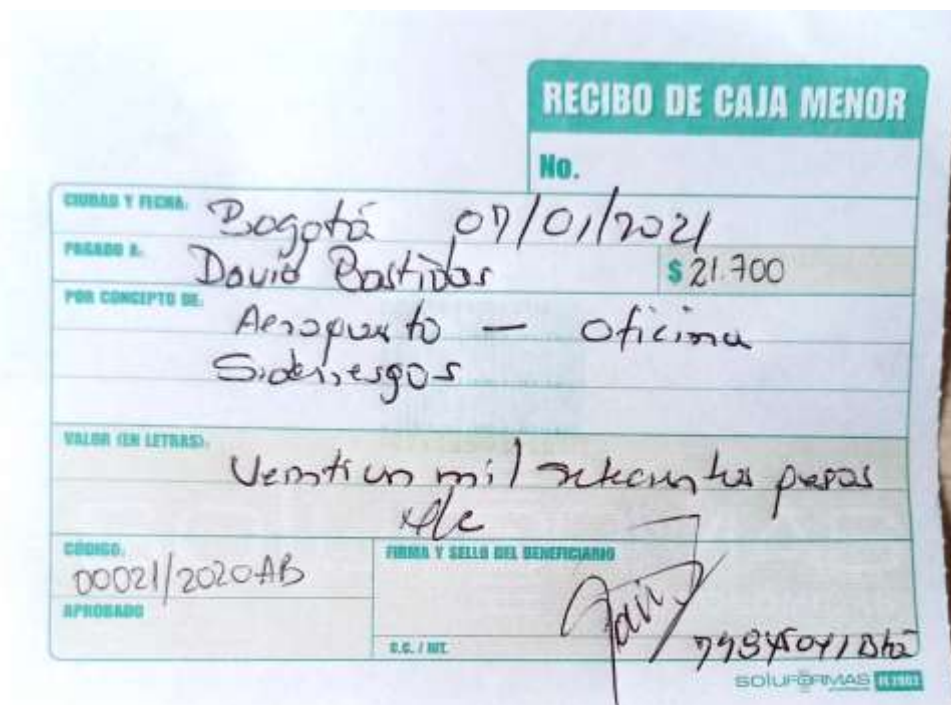 RECIBO DE CAJA MENOR
No.
CIUDAD Y FECHA: Bogotá 07/01/2021
PAGADO A: David Bastidas $ 21.700
POR CONCEPTO DE: Aeropuerto — Oficina
Siderriesgos
VALOR (EN LETRAS): Veintiun mil setecientos pesos
M/c
CÓDIGO: 00021/2020AB
FIRMA Y SELLO DEL BENEFICIARIO
APROBADO
C.C. / NIT.
SOLUFORMAS